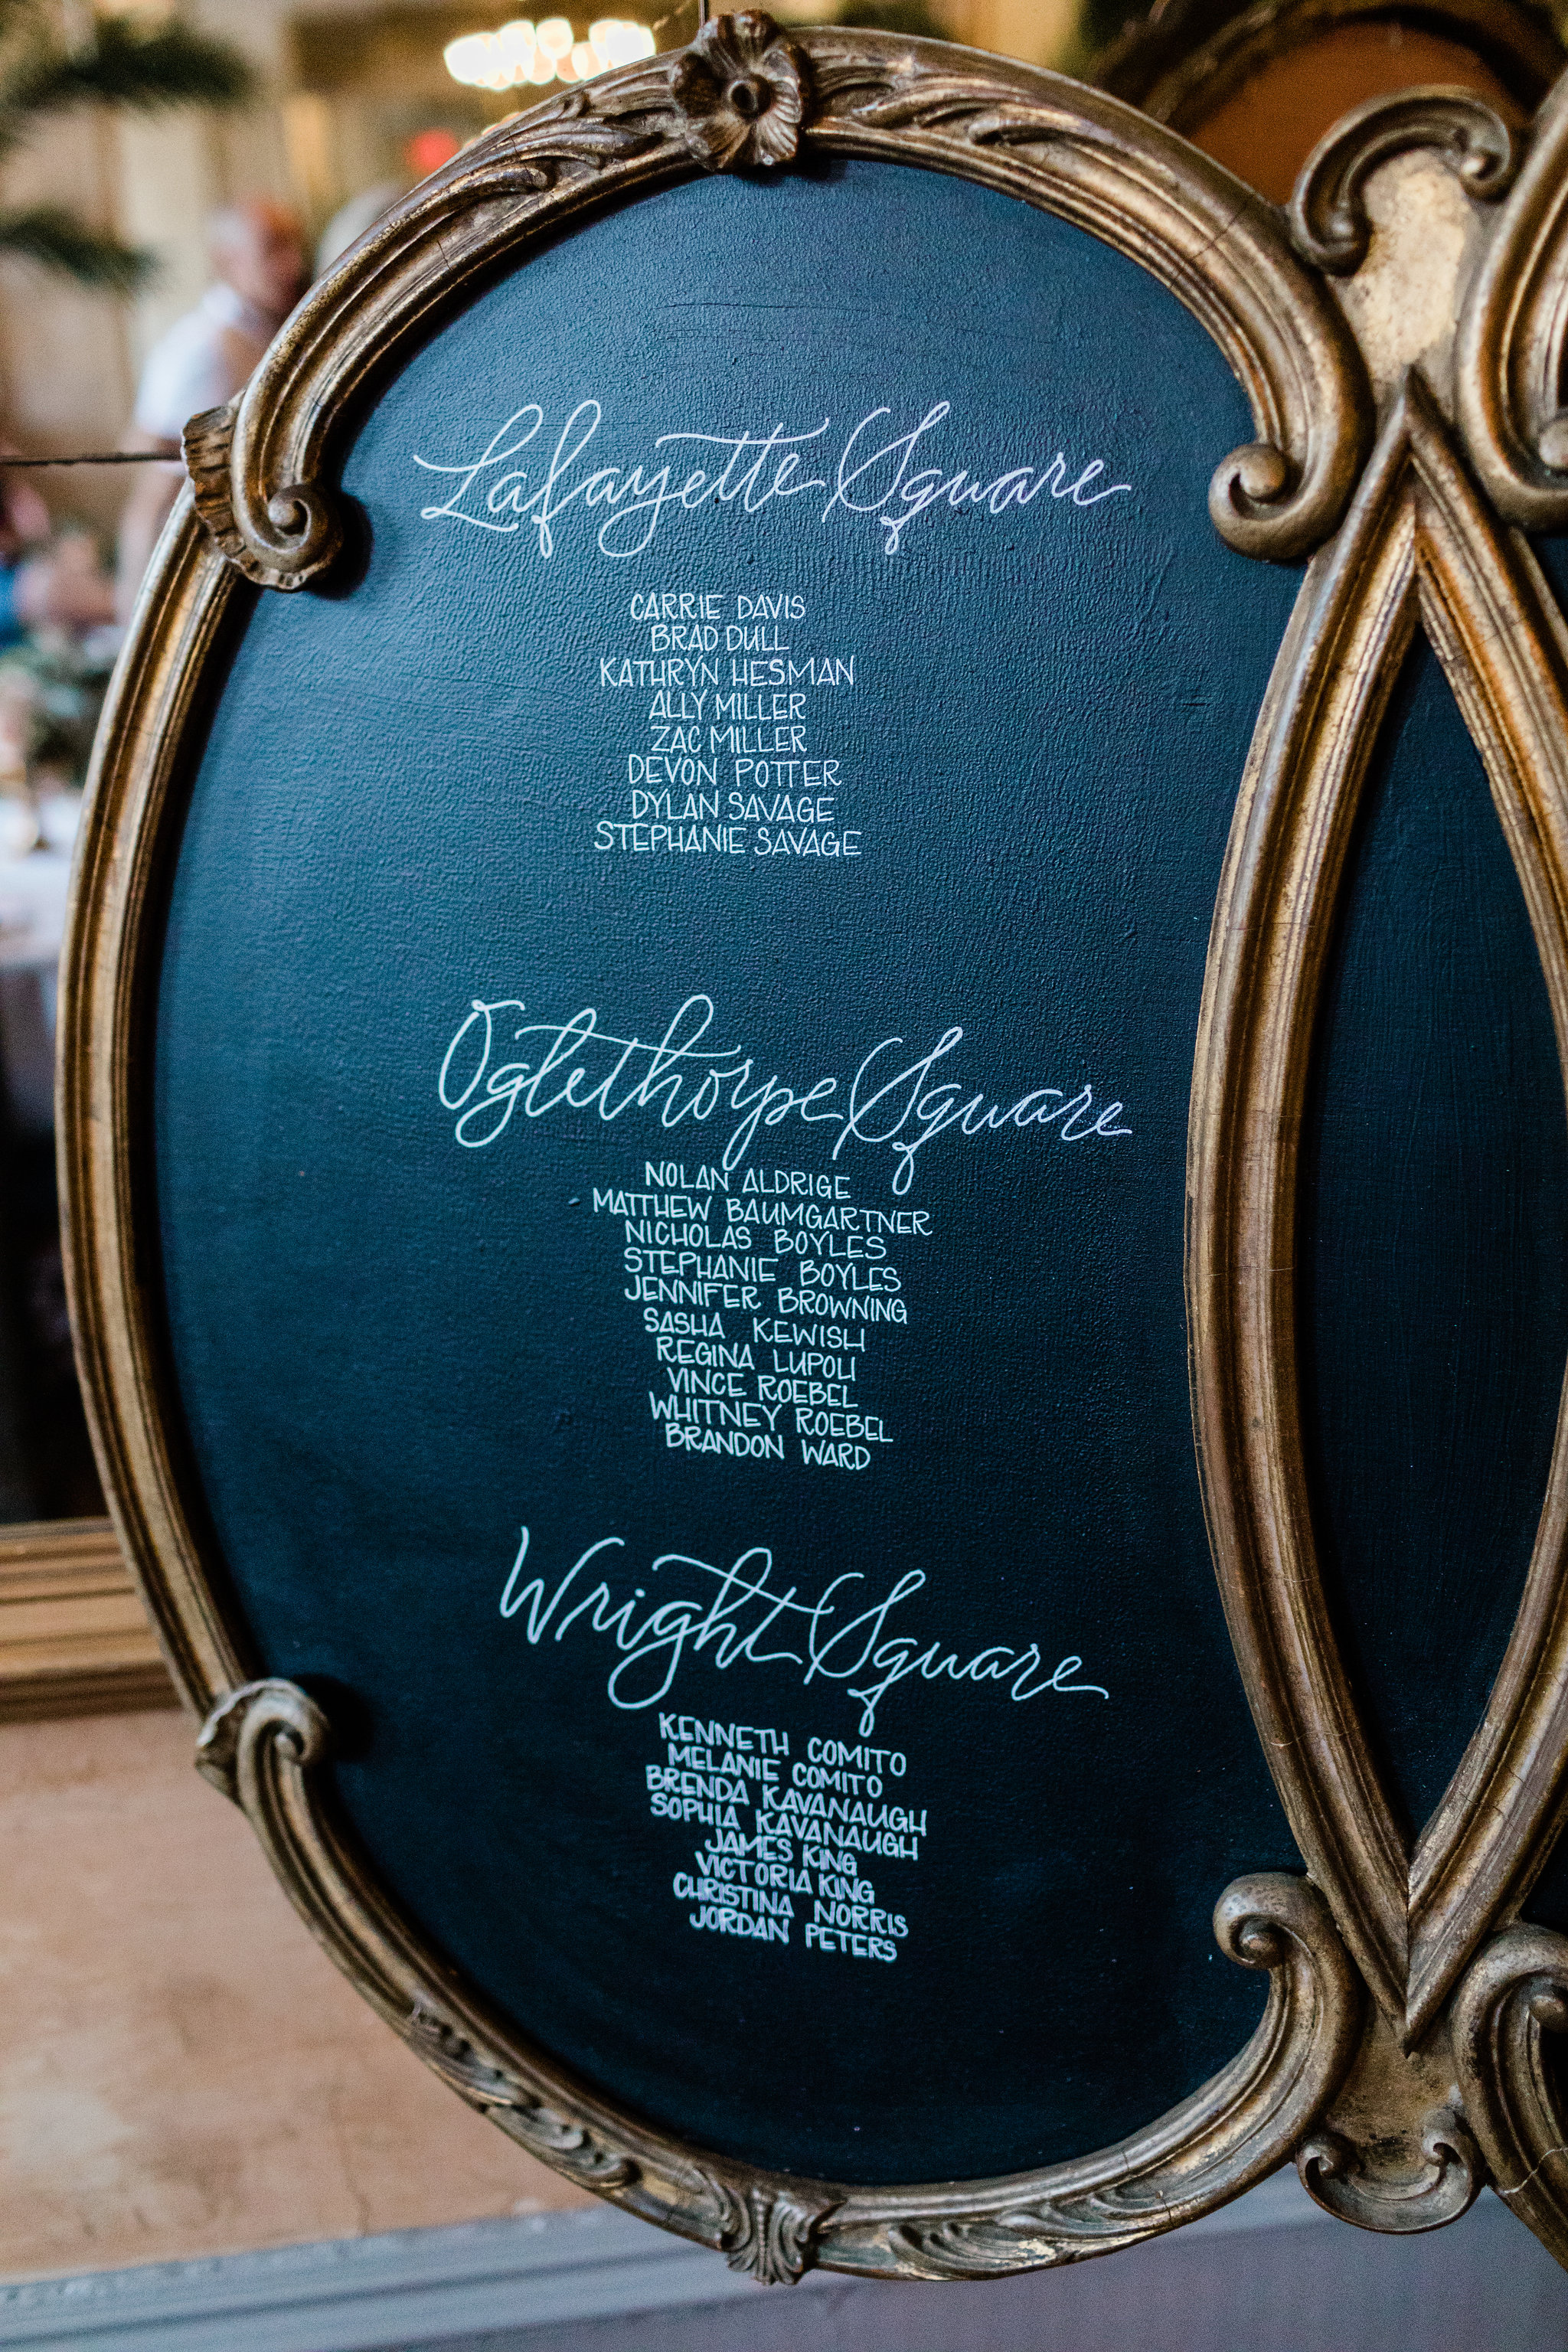 Lafayette Square
CARRIE DAVIS
BRAD DULL
KATHRYN HESMAN
ALLY MILLER
ZAC MILLER
DEVON POTTER
DYLAN SAVAGE
STEPHANIE SAVAGE
Oglethorpe Square
NOLAN ALDRIGE
MATTHEW BAUMGARTNER
NICHOLAS BOYLES
STEPHANIE BOYLES
JENNIFER BROWNING
SASHA KEWISH
REGINA LUPOLI
VINCE ROEBEL
WHITNEY ROEBEL
BRANDON WARD
Wright Square
KENNETH COMITO
MELANIE COMITO
BRENDA KAVANAUGH
SOPHIA KAVANAUGH
JAMES KING
VICTORIA KING
CHRISTINA NORRIS
JORDAN PETERS